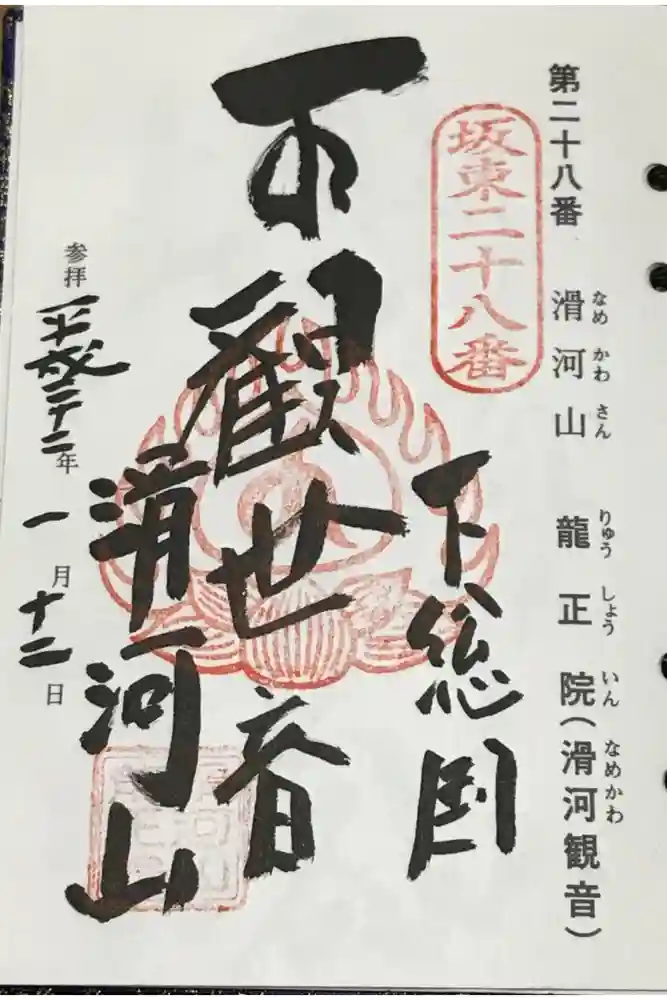 第二十八番 滑河山 龍正院(滑河観音)
なめ かわ さん りゅう しょう いん なめかわ
坂東二十八番
下総国
觀世音
滑河山
参拝 平成二十二年 一月 十二日